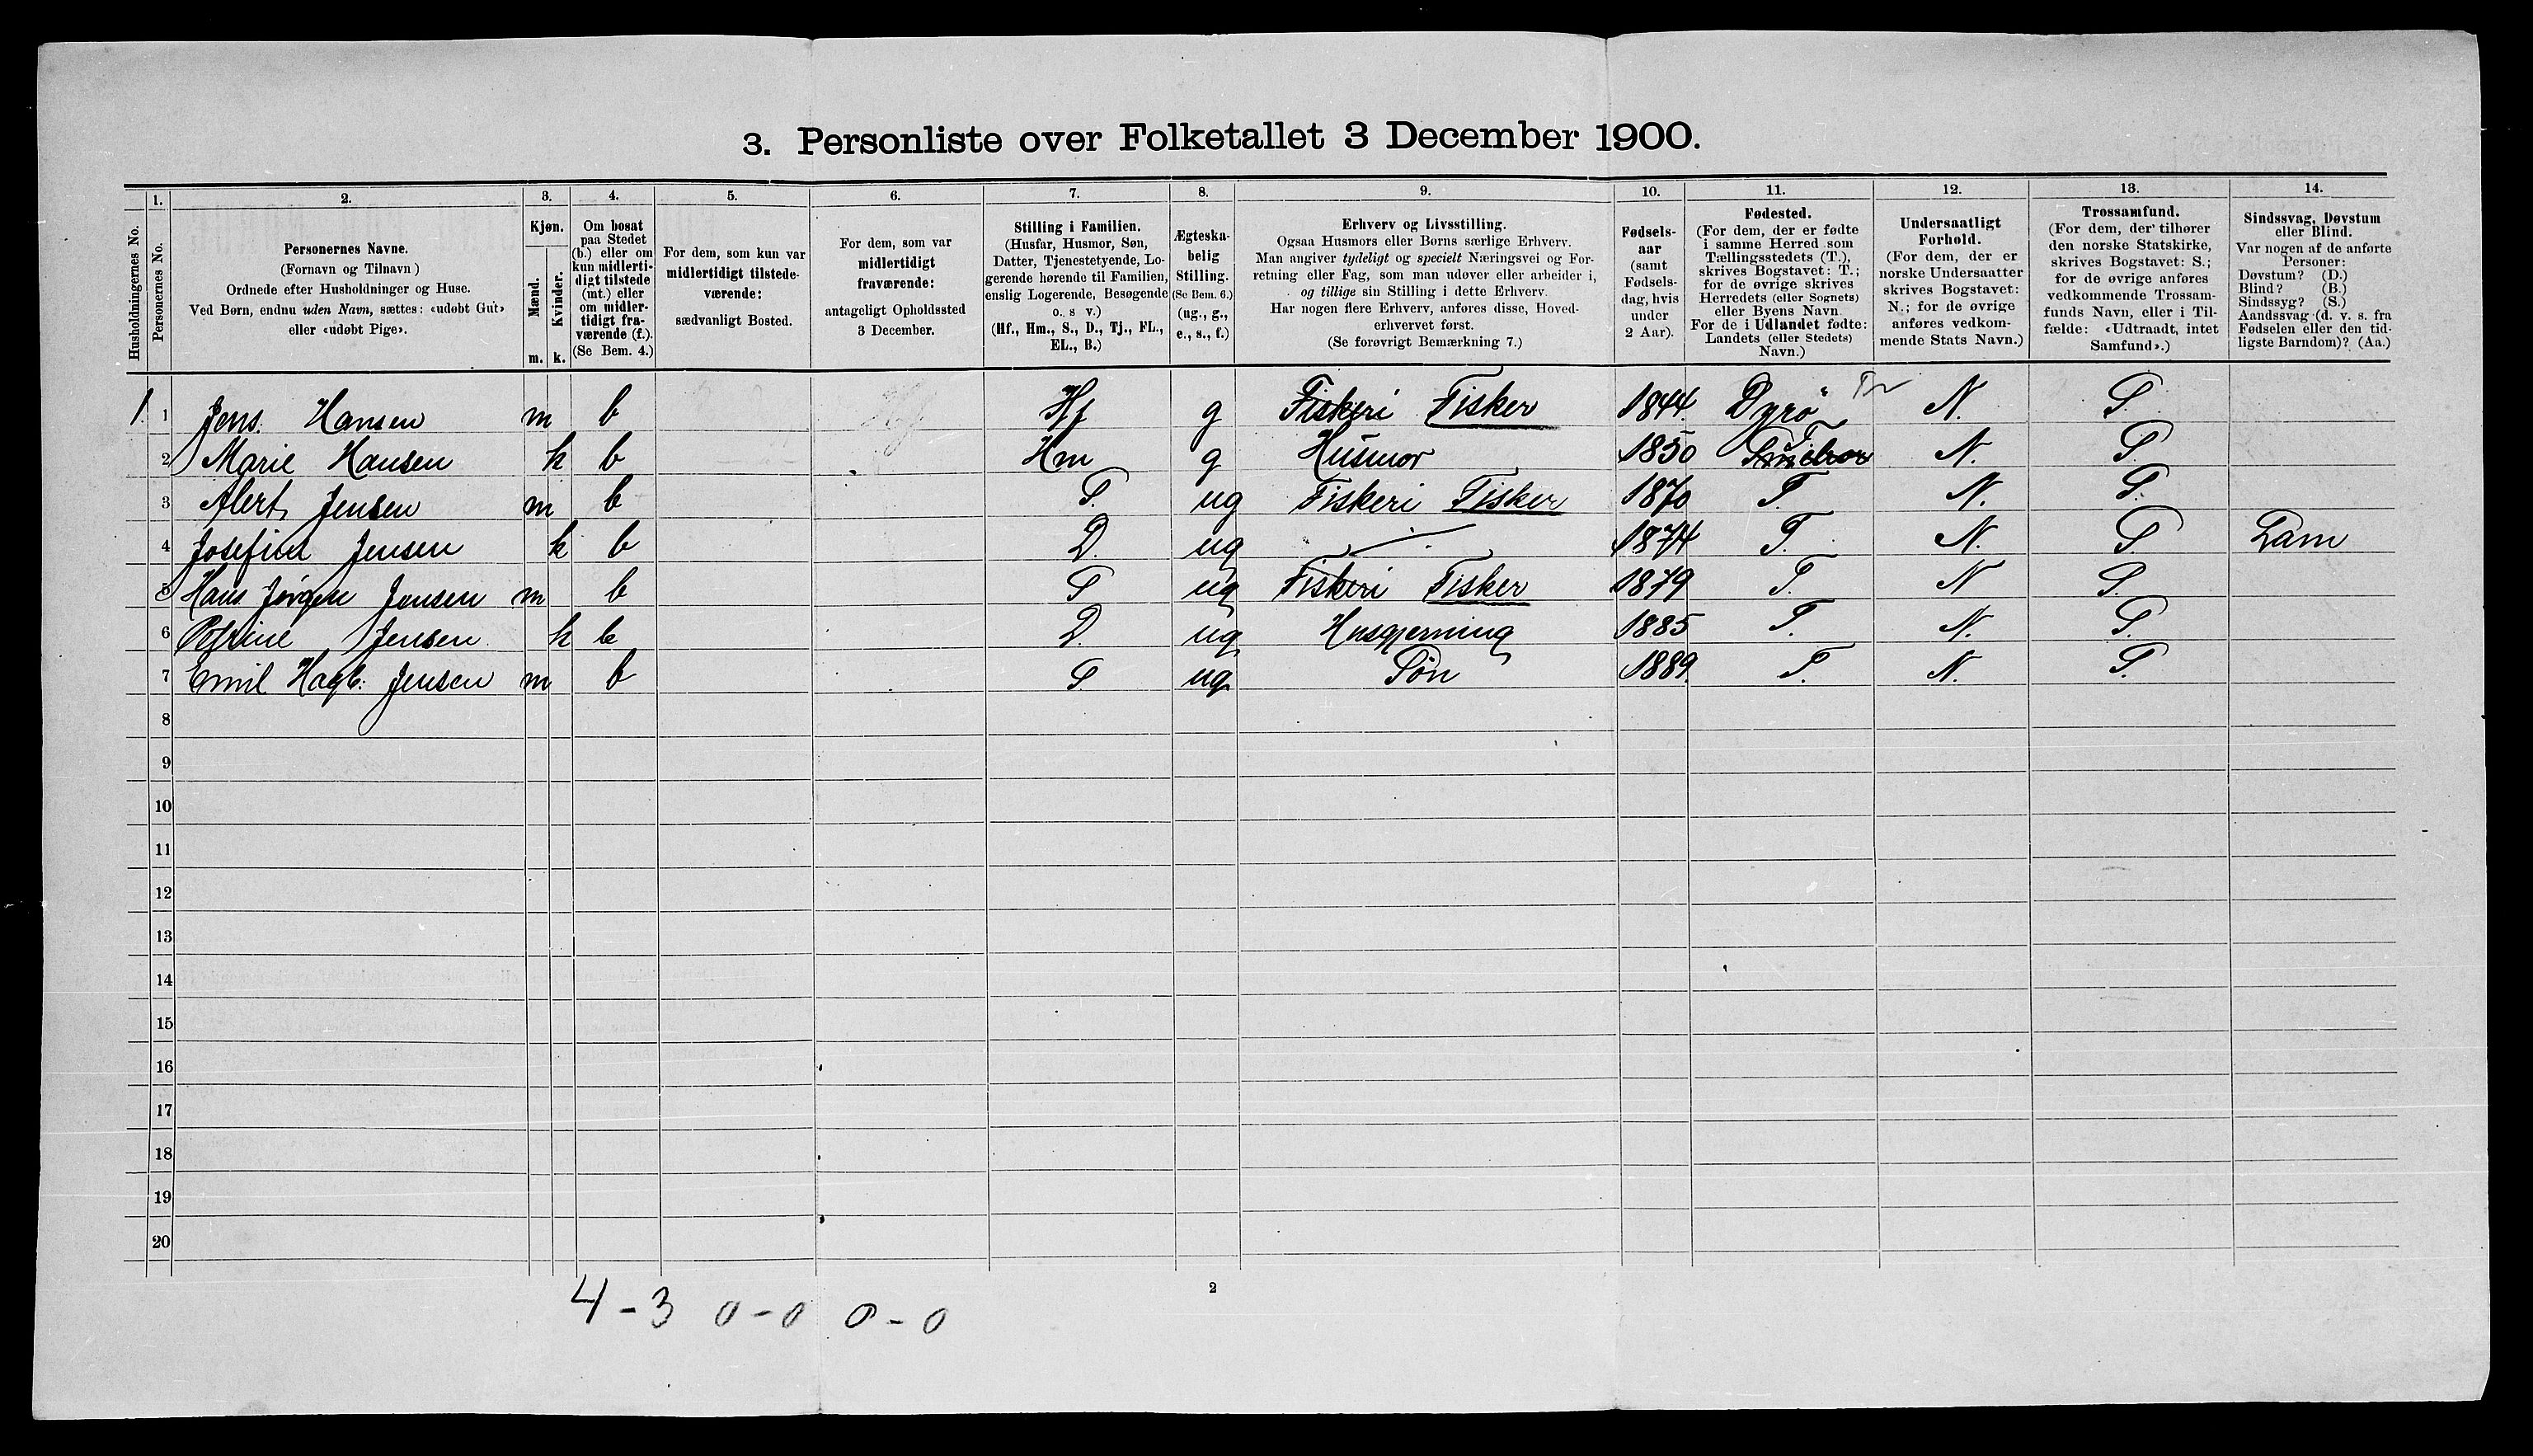 3. Personliste over Folketallet 3 December 1900.
1. 2. 3. 4. 5. 6. 7. 8. 9. 10. 11. 12. 13. 14.
Husholdningernes No.
Personernes No.
Personernes Navne.
(Fornavn og Tilnavn)
Ordnede efter Husholdninger og Huse.
Ved Børn, endnu uden Navn, sættes: «udøbt Gut»
eller «udøbt Pige».
Kjøn.
Mænd.
Kvinder.
m. k.
Om bosat
paa Stedet
(b.) eller om
kun midlerti-
digt tilstede
(mt.) eller
om midler-
tidigt fra-
værende (f.).
(Se Bem. 4.)
For dem, som kun var
midlertidigt tilstede-
værende:
sædvanligt Bosted.
For dem, som var
midlertidigt
fraværende:
antageligt Opholdssted
3 December.
Stilling i Familien.
(Husfar, Husmor, Søn,
Datter, Tjenestetyende, Lo-
gerende hørende til Familien,
enslig Logerende, Besøgende
o. s v.)
(Hf., Hm., S., D., Tj., FL.,
EL., B.)
Ægteska-
belig
Stilling.
(Se Bem. 6.)
(ug., g.,
e., s., f.)
Erhverv og Livsstilling.
Ogsaa Husmors eller Børns særlige Erhverv.
Man angiver tydeligt og specielt Næringsvei og For-
retning eller Fag, som man udøver eller arbeider i,
og tillige sin Stilling i dette Erhverv.
Har nogen flere Erhverv, anføres disse, Hoved-
erhvervet først.
(Se forøvrigt Bemærkning 7.)
Fødsels-
aar
(samt
Fødsels-
dag, hvis
under
2 Aar).
Fødested.
(For dem, der er fødte
i samme Herred som
Tællingsstedets (T.),
skrives Bogstavet: T.;
for de øvrige skrives
Herredets (eller Sognets)
eller Byens Navn.
For de i Udlandet fødte:
Landets (eller Stedets)
Navn.)
Undersaatligt
Forhold.
(For dem, der er
norske Undersaatter
skrives Bogstavet:
N.; for de øvrige
anføres vedkom-
mende Stats Navn.)
Trossamfund.
(For dem, der tilhører
den norske Statskirke,
skrives Bogstavet: S.;
for de øvrige anføres
vedkommende Trossam-
funds Navn, eller i Til-
fælde: «Udtraadt, intet
Samfund».)
Sindssvag, Døvstum
eller Blind.
Var nogen af de anførte
Personer:
Døvstum? (D.)
Blind? (B.)
Sindssyg? (S.)
Aandssvag (d. v. s. fra
Fødselen eller den tid-
ligste Barndom)? (Aa.)
1. 1 Jens Hansen m b Hf g Fiskeri Fisker 1844 Dyrö Tr N. S.
2 Marie Hansen k b Hm g Husmor 1850 T N. S.
3 Alert Jensen m b S. ug Fiskeri Fisker 1870 T. N. S.
4 Josefine Jensen k b D. ug 1874 T. N. S. Lam
5 Hans Jørgen Jensen m b S ug Fiskeri Fisker 1879 T. N S.
6 Jensen k b D. ug Husgjerning 1885 T. N. S.
7 Emil Hagb: Jensen m b S ug. Søn 1889. T. N. S.
8
9
10
11
12
13
14
15
16
17
18
19
20
4 - 3 0 - 0 0 - 0
2